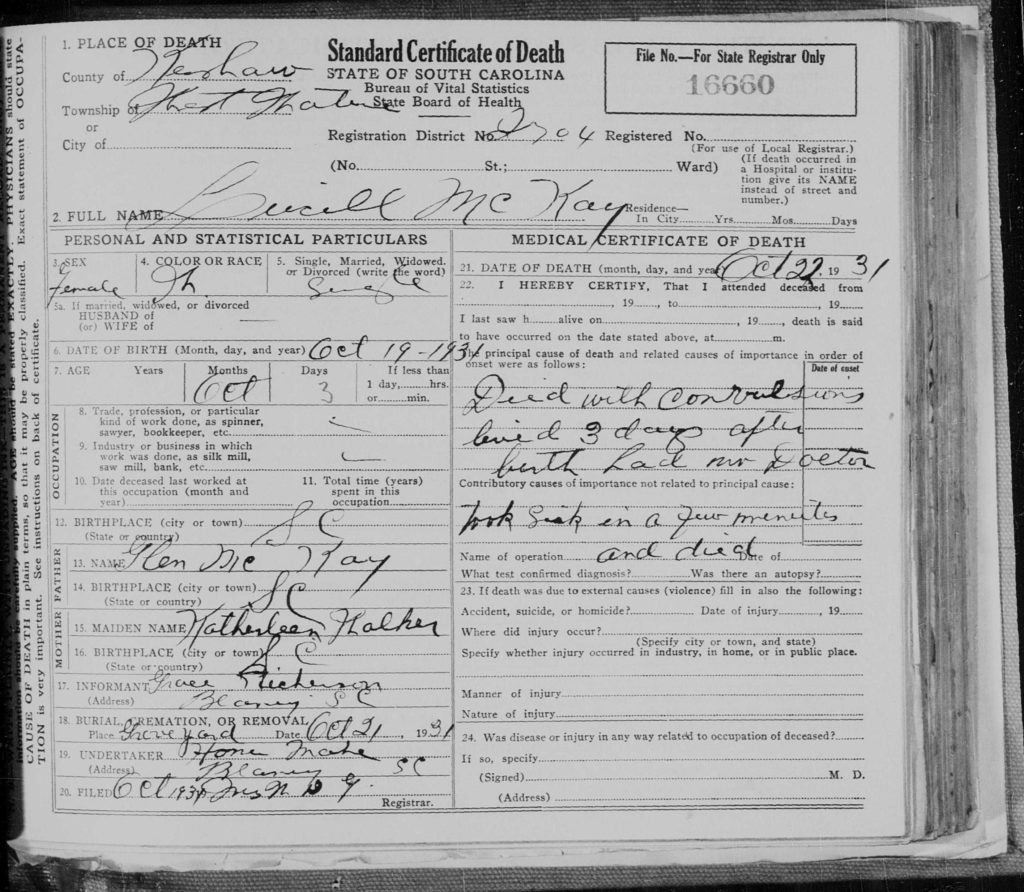 1. PLACE OF DEATH
County of Kershaw
Township of West Wateree
or
City of
Standard Certificate of Death
STATE OF SOUTH CAROLINA
Bureau of Vital Statistics
State Board of Health
File No.—For State Registrar Only
16660
Registration District No. 2704 Registered No.
(For use of Local Registrar.)
(No. St.; Ward)
(If death occurred in
a Hospital or institu-
tion give its NAME
instead of street and
number.)
2. FULL NAME Lucill Mc Kay
Residence—
In City Yrs. Mos. Days
PERSONAL AND STATISTICAL PARTICULARS
3. SEX
Female
4. COLOR OR RACE
5. Single, Married, Widowed.
or Divorced (write the word)
Single
5a. If married, widowed, or divorced
HUSBAND of
(or) WIFE of
6. DATE OF BIRTH (Month, day, and year) Oct 19-1931
7. AGE Years Months Days If less than
Oct 3 1 day, hrs.
or min.
OCCUPATION
8. Trade, profession, or particular
kind of work done, as spinner,
sawyer, bookkeeper, etc.
9. Industry or business in which
work was done, as silk mill,
saw mill, bank, etc.
10. Date deceased last worked at
this occupation (month and
year)
11. Total time (years)
spent in this
occupation
12. BIRTHPLACE (city or town) S C
(State or country)
FATHER
13. NAME Glen Mc Kay
14. BIRTHPLACE (city or town) S C
(State or country)
MOTHER
15. MAIDEN NAME Katherleen Walker
16. BIRTHPLACE (city or town) S C
(State or country)
17. INFORMANT Grace
(Address) Blaney S C
18. BURIAL, CREMATION, OR REMOVAL
Place Grove yard Date Oct 21, 1931
19. UNDERTAKER Home Made
(Address) Blaney S C
20. FILED Oct 193
Registrar.
MEDICAL CERTIFICATE OF DEATH
21. DATE OF DEATH (month, day, and year) Oct 22, 1931
22. I HEREBY CERTIFY, That I attended deceased from
, 19 , to , 19
I last saw h alive on , 19 , death is said
to have occurred on the date stated above, at m.
The principal cause of death and related causes of importance in order of
onset were as follows:
Date of onset
Died with convulsions
lived 3 days after
birth had no Doctor
Contributory causes of importance not related to principal cause:
took sick in a few menutes
and died
Name of operation Date of
What test confirmed diagnosis? Was there an autopsy?
23. If death was due to external causes (violence) fill in also the following:
Accident, suicide, or homicide? Date of injury , 19
Where did injury occur?
(Specify city or town, and state)
Specify whether injury occurred in industry, in home, or in public place.
Manner of injury
Nature of injury
24. Was disease or injury in any way related to occupation of deceased?
If so, specify
(Signed) M. D.
(Address)
AGE should be stated EXACTLY. PHYSICIANS should state
CAUSE OF DEATH in plain terms, so that it may be properly classified. Exact statement of OCCUPA-
TION is very important. See instructions on back of certificate.